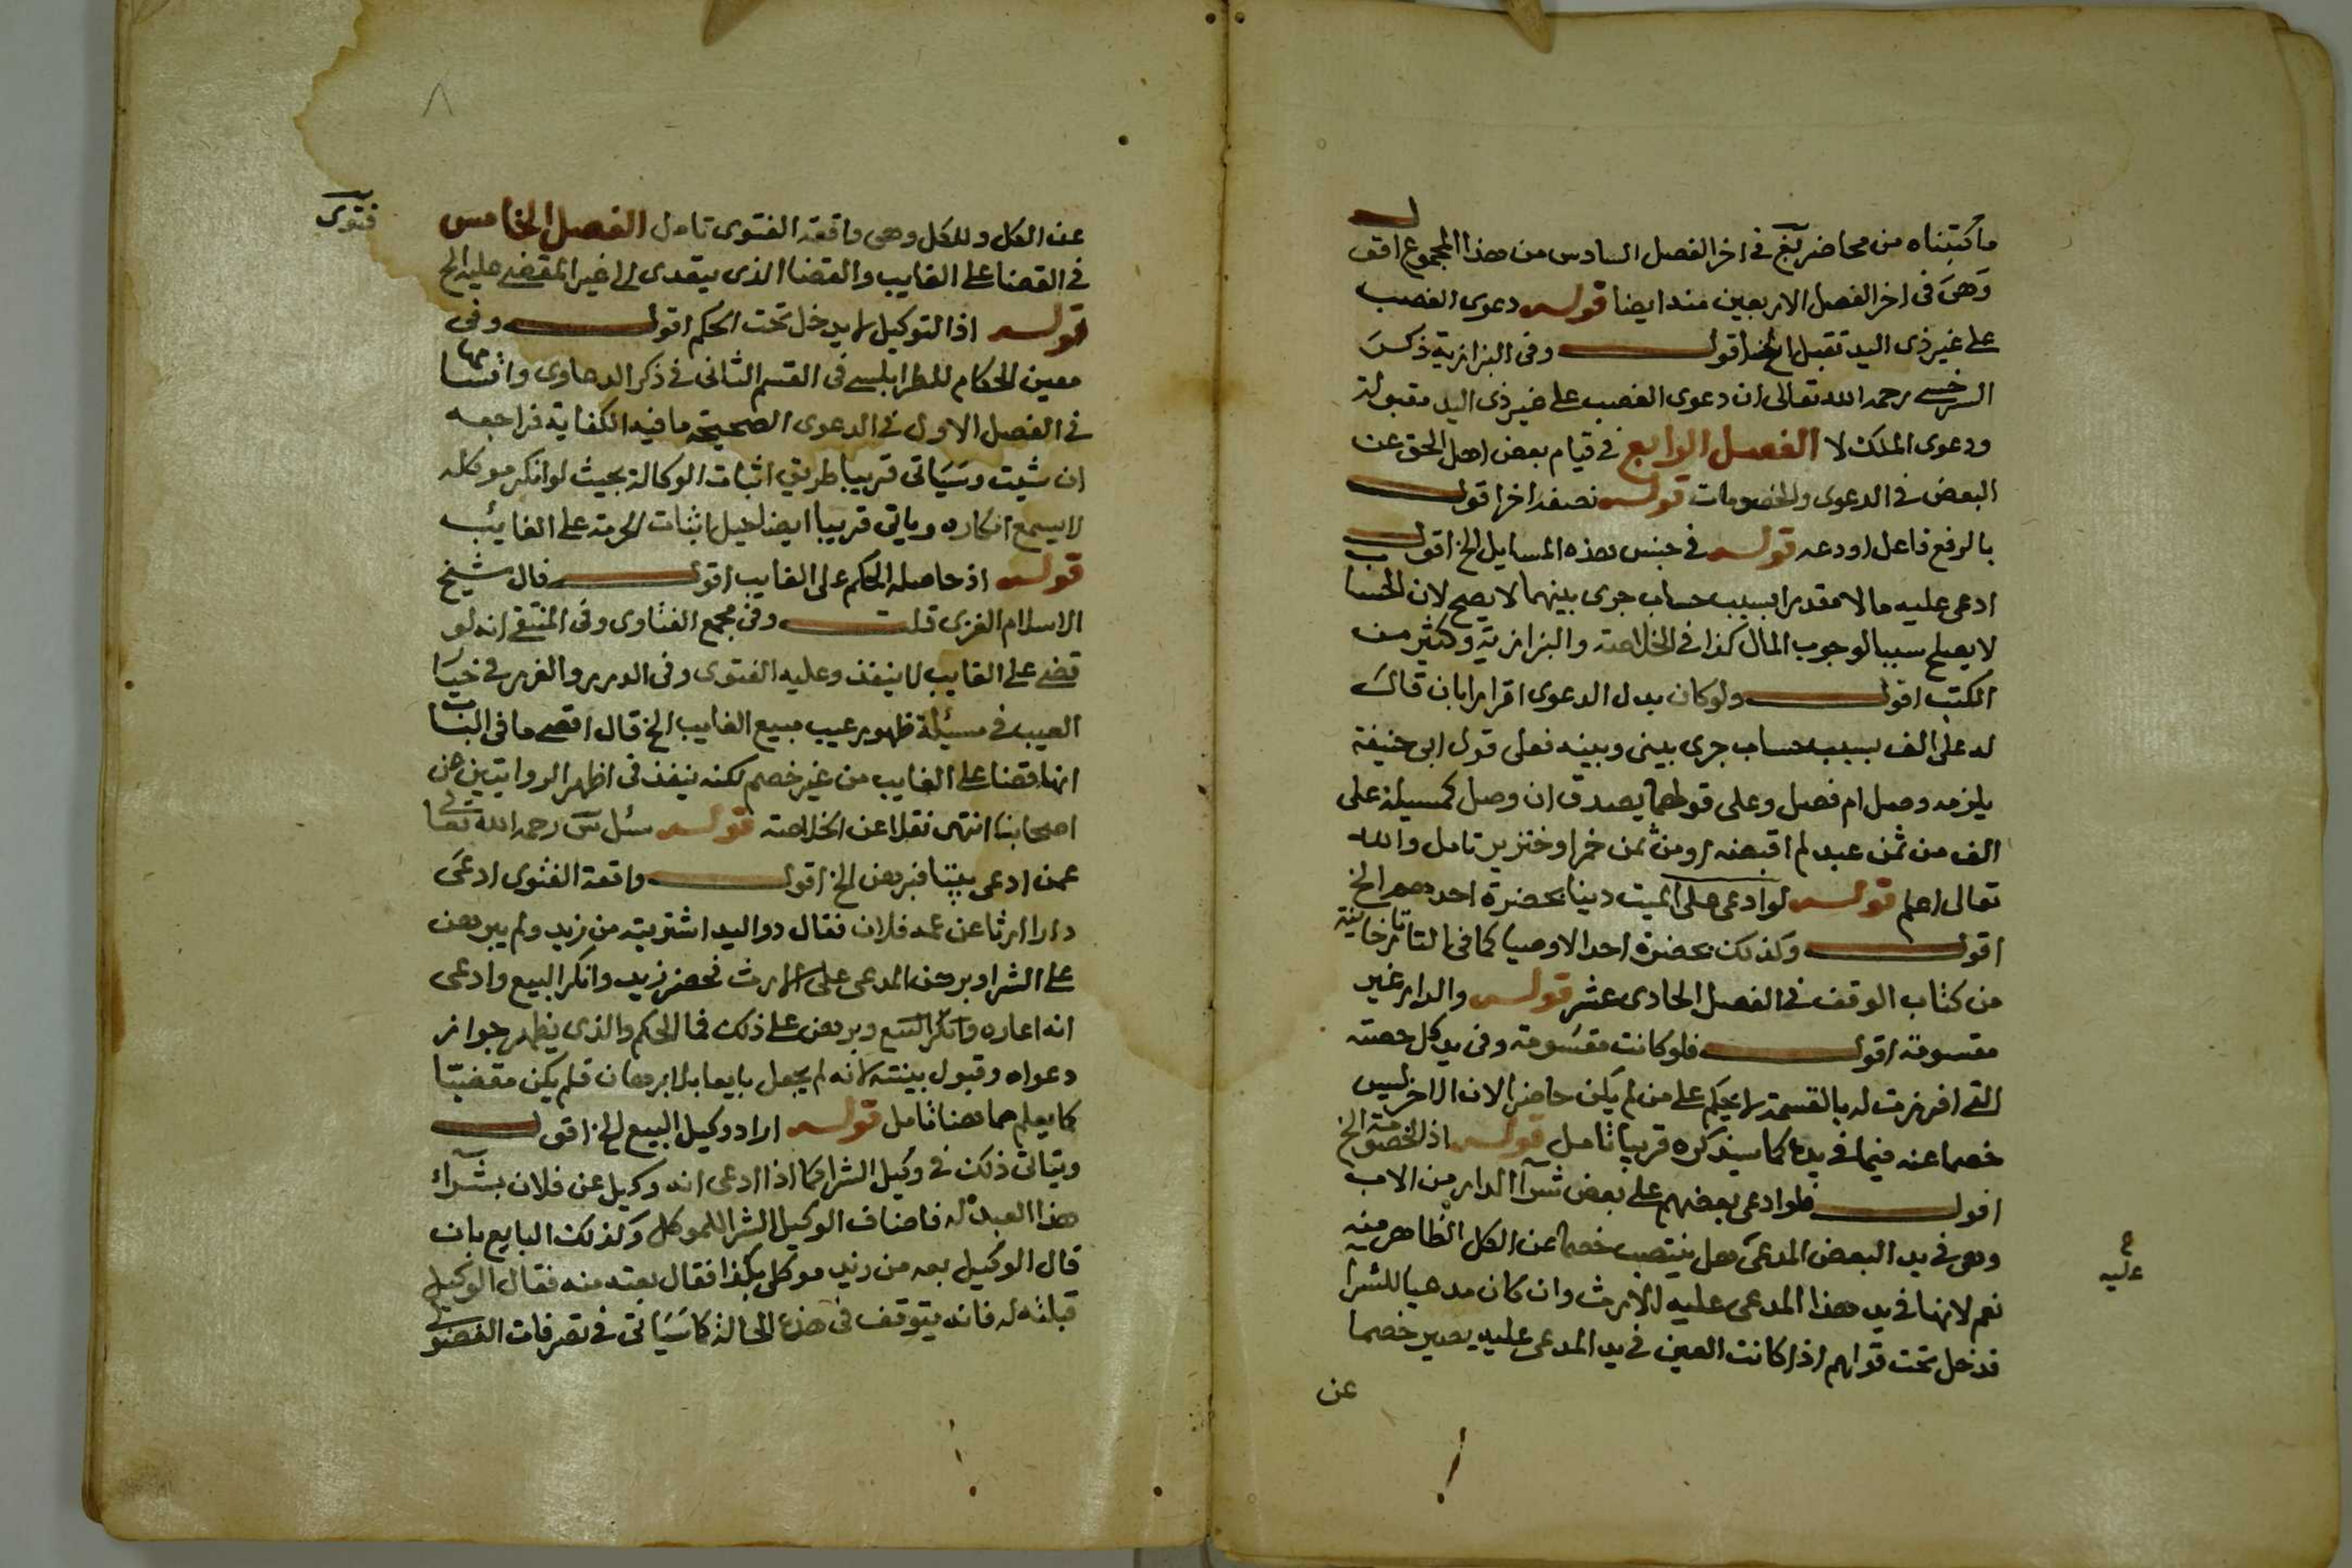 ما كتبناه من محاضر بغ في اخر الفصل السادس من هذا المجموع اقول
وهي في اخر الفصل الاربعين منه ايضا قوله دعوى الغصب
على غير ذي اليد تقبل الخ اقول وفي البزازية ذكر
السرخسي رحمه الله تعالى ان دعوى الغصب على غير ذي اليد مقبولة
ودعوى الملك لا الفصل الرابع في قيام بعض اهل الحق عن
البعض في الدعوى والخصومات قوله نصفه اخر اقول
بالرفع فاعل اودعه قوله في جنس هذه المسايل الخ اقول
ادعى عليه مالا مقدرا بسبب حساب جرى بينهما لا يصح لان الحساب
لا يصلح سببا لوجوب المال كذا في الخلاصة والبزازية وكثير من
الكتب اقول ولو كان بدل الدعوى اقرارا بان قال
له على الف بسبب حساب جرى بيني وبينه فعلى قول ابى حنيفة
يلزمه وصل ام فصل وعلى قولهما يصدق ان وصل كمسيلة على
الف من ثمن عبد لم اقبضه او من ثمن خمر او خنزير تامل والله
تعالى اعلم قوله لو ادعى على الميت دينا بحضرة احدهم الخ
اقول وكذلك بحضرة احد الاوصيا كما في التاتارخانية
من كتاب الوقف في الفصل الحادي عشر قوله والدار غير
مقسومة اقول فلو كانت مقسومة وفي يد كل حصته
التي افرزت له بالقسمة لا يحكم على من لم يكن حاضرا لان الاخر ليس
خصما عنه فيما في يده كما سيذكره قريبا تامل قوله اذ الخصومة الخ
اقول فلو ادعى بعضهم على بعض شرآ الدار من الاب
وهي في يد البعض المدعى هل ينتصب خصما عن الكل الظاهر منه
ع
عليه
نعم لانها في يد هذا المدعى عليه للارث وان كان مدعيا للشرا
فدخل تحت قولهم اذا كانت العين في يد المدعى عليه يصير خصما
عن
عن الكل وللكل وهي واقعة الفتوى تامل الفصل الخامس
فتوى
في القضا على الغايب والقضا الذي يتعدى الى غير المقضي عليه الخ
قوله اذ التوكيل لا يدخل تحت الحكم اقول وفي
معين الحكام للطرابلسي في القسم الثاني في ذكر الدعاوى واقسامها
في الفصل الاول في الدعوى الصحيحة ما فيه الكفاية فراجعه
ان شيت وسياتى قريبا طريق اثبات الوكالة بحيث لو انكر موكله
لا يسمع انكاره وياتي قريبا ايضا حيل اثبات الحرمة على الغايب
قوله اذ حاصله الحكم على الغايب اقول قال شيخ
الاسلام الغزى قلت وفي مجمع الفتاوى وفي المنتقى انه لو
قضى على الغايب لا ينفذ وعليه الفتوى وفي الدرر والغرر في خيار
العيب في مسئلة ظهور عيب مبيع الغايب الخ قال اقصى ما في الباب
انها قضا على الغايب من غير خصم لكنه ينفذ في اظهر الروايتين عن
اصحابنا انتهى نقلا عن الخلاصة قوله سئل س رحمه الله تعالى
عمن ادعى بيتا فبرهن الخ اقول واقعة الفتوى ادعى
دارا ارثا عن عمه فلان فقال ذو اليد اشتريته من زيد ولم يبرهن
على الشرا وبرهن المدعى على الارث فحضر زيد وانكر البيع وادعى
انه اعاره وانكر البيع وبرهن على ذلك فما الحكم والذي يظهر جواز
دعواه وقبول بينته لانه لم يجعل بايعا بلا برهان فلم يكن مقضيا
كما يعلم مما هنا تامل قوله اراد وكيل البيع الخ اقول
ويتاتى ذلك في وكيل الشرا فكما اذا ادعى انه وكيل عن فلان بشرآء
هذا العبد له فاضاف الوكيل الشرا للموكل وكذلك البايع بان
قال الوكيل بعه من زيد موكلى بكذا فقال بعته منه فقال الوكيل
قبلته له فانه يتوقف في هذه الحالة كما سياتي في تصرفات الفضولي